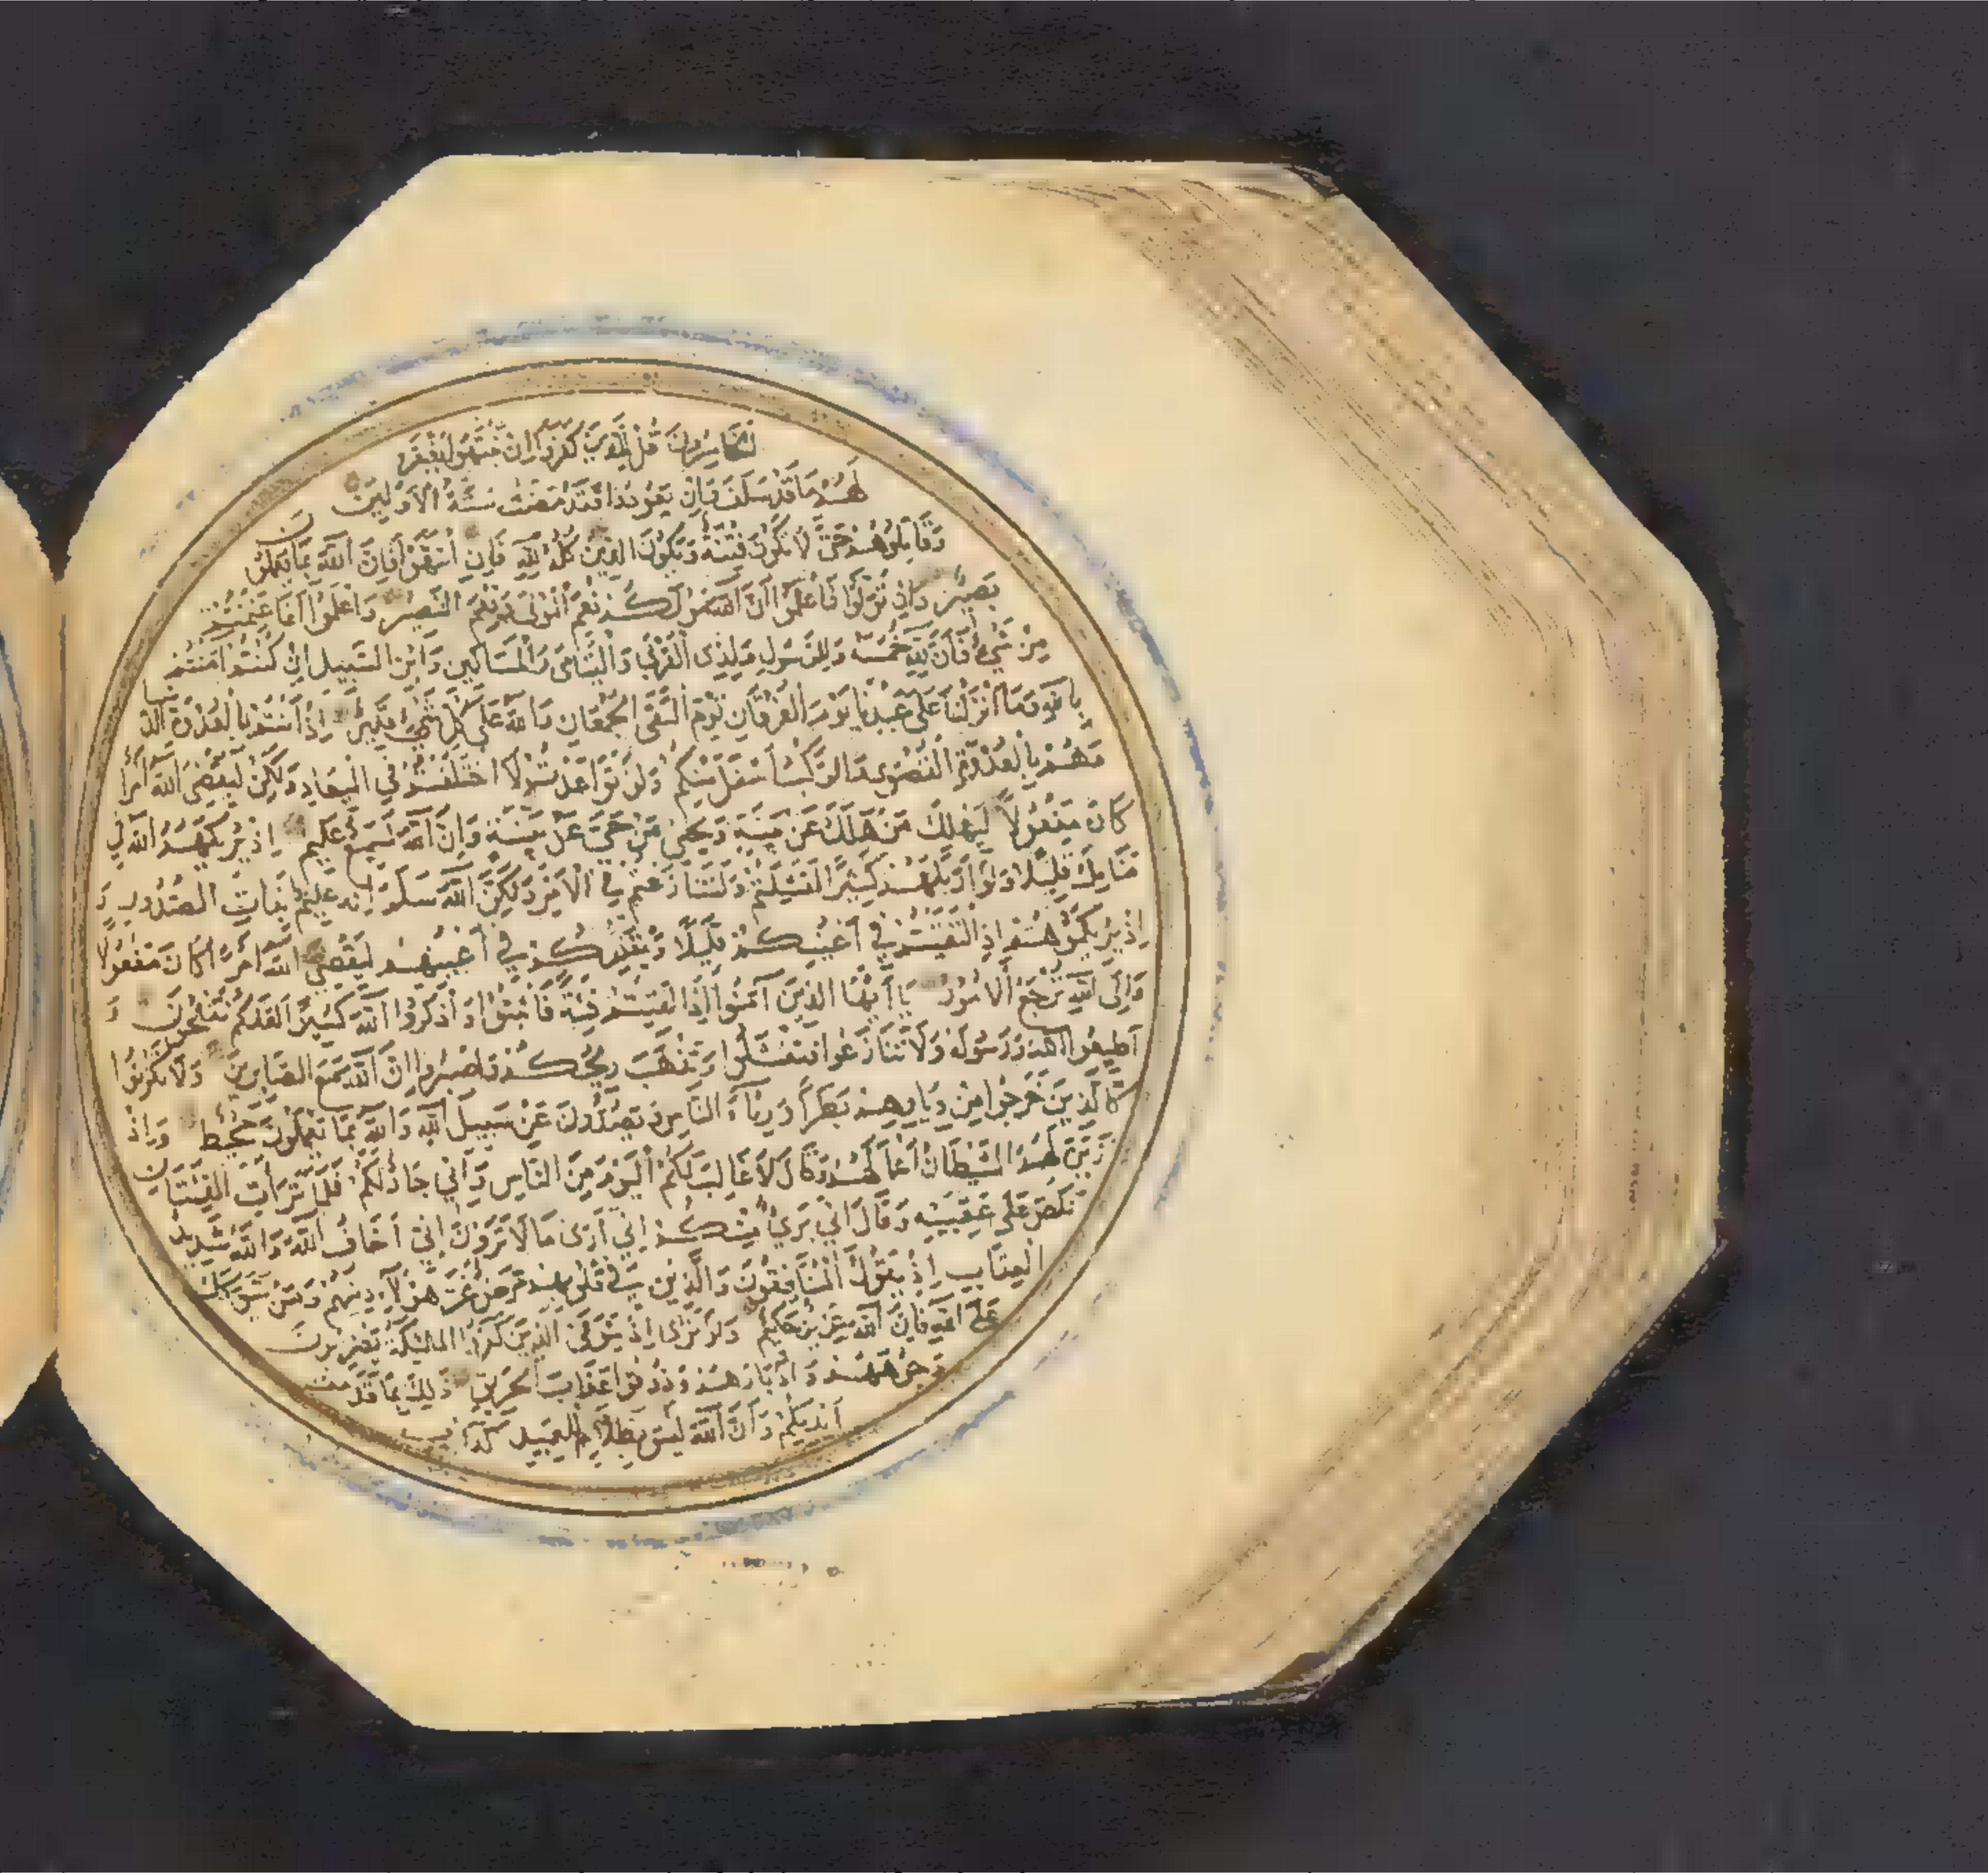 الخَاسِرُونَ قُلْ لِلَّذِينَ كَفَرُوا إِنْ يَنْتَهُوا يُغْفَرْ
لَهُمْ مَا قَدْ سَلَفَ وَإِنْ يَعُودُوا فَقَدْ مَضَتْ سُنَّةُ الْأَوَّلِينَ
وَقَاتِلُوهُمْ حَتَّى لَا تَكُونَ فِتْنَةٌ وَيَكُونَ الدِّينُ كُلُّهُ لِلَّهِ فَإِنِ انْتَهَوْا فَإِنَّ اللَّهَ بِمَا يَعْمَلُونَ
بَصِيرٌ وَإِنْ تَوَلَّوْا فَاعْلَمُوا أَنَّ اللَّهَ مَوْلَاكُمْ نِعْمَ الْمَوْلَى وَنِعْمَ النَّصِيرُ وَاعْلَمُوا أَنَّمَا غَنِمْتُمْ
مِنْ شَيْءٍ فَأَنَّ لِلَّهِ خُمُسَهُ وَلِلرَّسُولِ وَلِذِي الْقُرْبَى وَالْيَتَامَى وَالْمَسَاكِينِ وَابْنِ السَّبِيلِ إِنْ كُنْتُمْ آمَنْتُمْ
بِاللَّهِ وَمَا أَنْزَلْنَا عَلَى عَبْدِنَا يَوْمَ الْفُرْقَانِ يَوْمَ الْتَقَى الْجَمْعَانِ وَاللَّهُ عَلَى كُلِّ شَيْءٍ قَدِيرٌ إِذْ أَنْتُمْ بِالْعُدْوَةِ الدُّنْيَا
وَهُمْ بِالْعُدْوَةِ الْقُصْوَى وَالرَّكْبُ أَسْفَلَ مِنْكُمْ وَلَوْ تَوَاعَدْتُمْ لَاخْتَلَفْتُمْ فِي الْمِيعَادِ وَلَكِنْ لِيَقْضِيَ اللَّهُ أَمْرًا
كَانَ مَفْعُولًا لِيَهْلِكَ مَنْ هَلَكَ عَنْ بَيِّنَةٍ وَيَحْيَى مَنْ حَيَّ عَنْ بَيِّنَةٍ وَإِنَّ اللَّهَ لَسَمِيعٌ عَلِيمٌ إِذْ يُرِيكَهُمُ اللَّهُ فِي
مَنَامِكَ قَلِيلًا وَلَوْ أَرَاكَهُمْ كَثِيرًا لَفَشِلْتُمْ وَلَتَنَازَعْتُمْ فِي الْأَمْرِ وَلَكِنَّ اللَّهَ سَلَّمَ إِنَّهُ عَلِيمٌ بِذَاتِ الصُّدُورِ وَ
إِذْ يُرِيكُمُوهُمْ إِذِ الْتَقَيْتُمْ فِي أَعْيُنِكُمْ قَلِيلًا وَيُقَلِّلُكُمْ فِي أَعْيُنِهِمْ لِيَقْضِيَ اللَّهُ أَمْرًا كَانَ مَفْعُولًا
وَإِلَى اللَّهِ تُرْجَعُ الْأُمُورُ يَا أَيُّهَا الَّذِينَ آمَنُوا إِذَا لَقِيتُمْ فِئَةً فَاثْبُتُوا وَاذْكُرُوا اللَّهَ كَثِيرًا لَعَلَّكُمْ تُفْلِحُونَ وَ
أَطِيعُوا اللَّهَ وَرَسُولَهُ وَلَا تَنَازَعُوا فَتَفْشَلُوا وَتَذْهَبَ رِيحُكُمْ وَاصْبِرُوا إِنَّ اللَّهَ مَعَ الصَّابِرِينَ وَلَا تَكُونُوا
كَالَّذِينَ خَرَجُوا مِنْ دِيَارِهِمْ بَطَرًا وَرِئَاءَ النَّاسِ وَيَصُدُّونَ عَنْ سَبِيلِ اللَّهِ وَاللَّهُ بِمَا يَعْمَلُونَ مُحِيطٌ وَإِذْ
زَيَّنَ لَهُمُ الشَّيْطَانُ أَعْمَالَهُمْ وَقَالَ لَا غَالِبَ لَكُمُ الْيَوْمَ مِنَ النَّاسِ وَإِنِّي جَارٌ لَكُمْ فَلَمَّا تَرَاءَتِ الْفِئَتَانِ
نَكَصَ عَلَى عَقِبَيْهِ وَقَالَ إِنِّي بَرِيءٌ مِنْكُمْ إِنِّي أَرَى مَا لَا تَرَوْنَ إِنِّي أَخَافُ اللَّهَ وَاللَّهُ شَدِيدُ
الْعِقَابِ إِذْ يَقُولُ الْمُنَافِقُونَ وَالَّذِينَ فِي قُلُوبِهِمْ مَرَضٌ غَرَّ هَؤُلَاءِ دِينُهُمْ وَمَنْ يَتَوَكَّلْ
عَلَى اللَّهِ فَإِنَّ اللَّهَ عَزِيزٌ حَكِيمٌ وَلَوْ تَرَى إِذْ يَتَوَفَّى الَّذِينَ كَفَرُوا الْمَلَائِكَةُ يَضْرِبُونَ
وُجُوهَهُمْ وَأَدْبَارَهُمْ وَذُوقُوا عَذَابَ الْحَرِيقِ ذَلِكَ بِمَا قَدَّمَتْ
أَيْدِيكُمْ وَأَنَّ اللَّهَ لَيْسَ بِظَلَّامٍ لِلْعَبِيدِ كَدَأْبِ